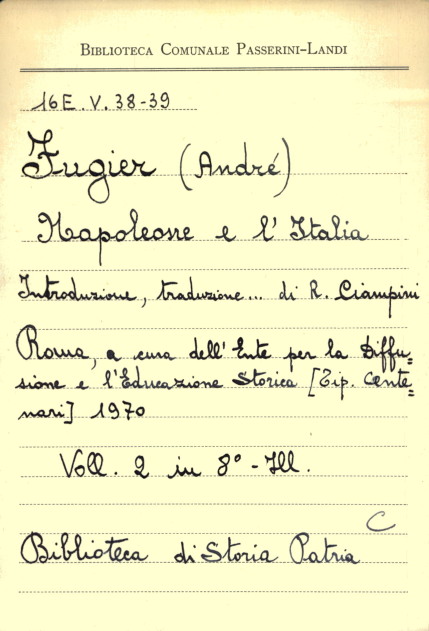 BIBLIOTECA COMUNALE PASSERINI-LANDI
16E.V.38-39
Fugier (André)
Napoleone e l'Italia
Introduzione, traduzione... di R. Ciampini
Roma, a cura dell'Ente per la Diffu=
sione e l'Educazione Storica [Tip. Cente=
nari] 1970
Voll. 2 in 8° - Ill.
C
Biblioteca di Storia Patria